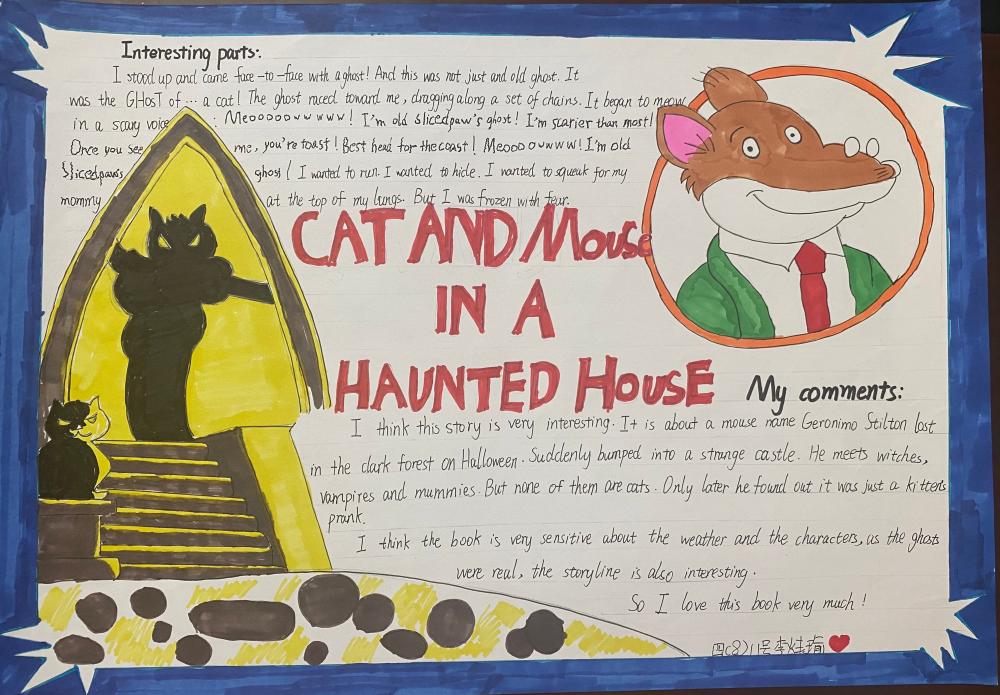 Interesting parts:
I stood up and came face-to-face with a ghost! And this was not just and old ghost. It
was the GHosT of ... a cat! The ghost raced toward me, dragging along a set of chains. It began to meow
in a scary voice : Meooooovwww! I'm old slicedpaw's ghost! I'm scarier than most!
Once you see me, you're toast! Best head for the coast! Meooo ovwww! I'm old
Slicedpaws ghost! I wanted to run. I wanted to hide. I wanted to squeak for my
mommy at the top of my lungs. But I was frozen with fear.
CAT AND Mouse
IN A
HAUNTED HOUSE
My comments:
I think this story is very interesting. It is about a mouse name Geronimo Stilton lost
in the dark forest on Halloween. Suddenly bumped into a strange castle. He meets witches,
vampires and mummies. But none of them are cats. Only later he found out it was just a kittens
prank.
I think the book is very sensitive about the weather and the characters, as the ghosts
were real, the storyline is also interesting.
So I love this book very much!
四(8)11号李